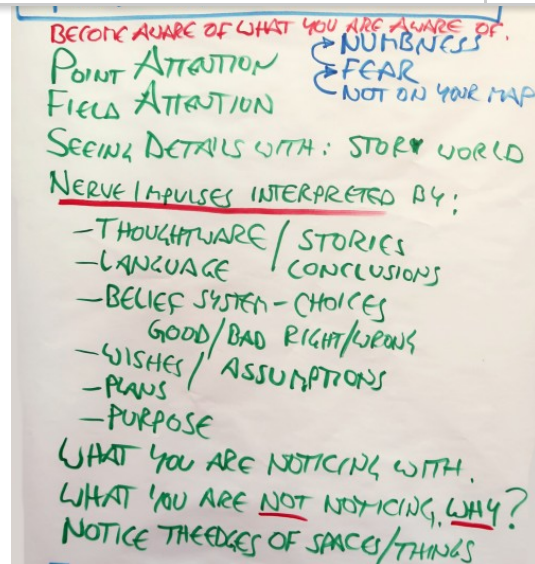 BECOME AWARE OF WHAT YOU ARE AWARE OF.
POINT ATTENTION
NUMBNESS
FEAR
NOT ON YOUR MAP
FIELD ATTENTION
SEEING DETAILS WITH: STORY WORLD
NERVE IMPULSES INTERPRETED BY:
- THOUGHTWARE / STORIES
- LANGUAGE / CONCLUSIONS
- BELIEF SYSTEM - CHOICES
GOOD/BAD RIGHT/WRONG
- WISHES / ASSUMPTIONS
- PLANS
- PURPOSE
WHAT YOU ARE NOTICING WITH.
WHAT YOU ARE NOT NOTICING. WHY?
NOTICE THE EDGES OF SPACES/THINGS